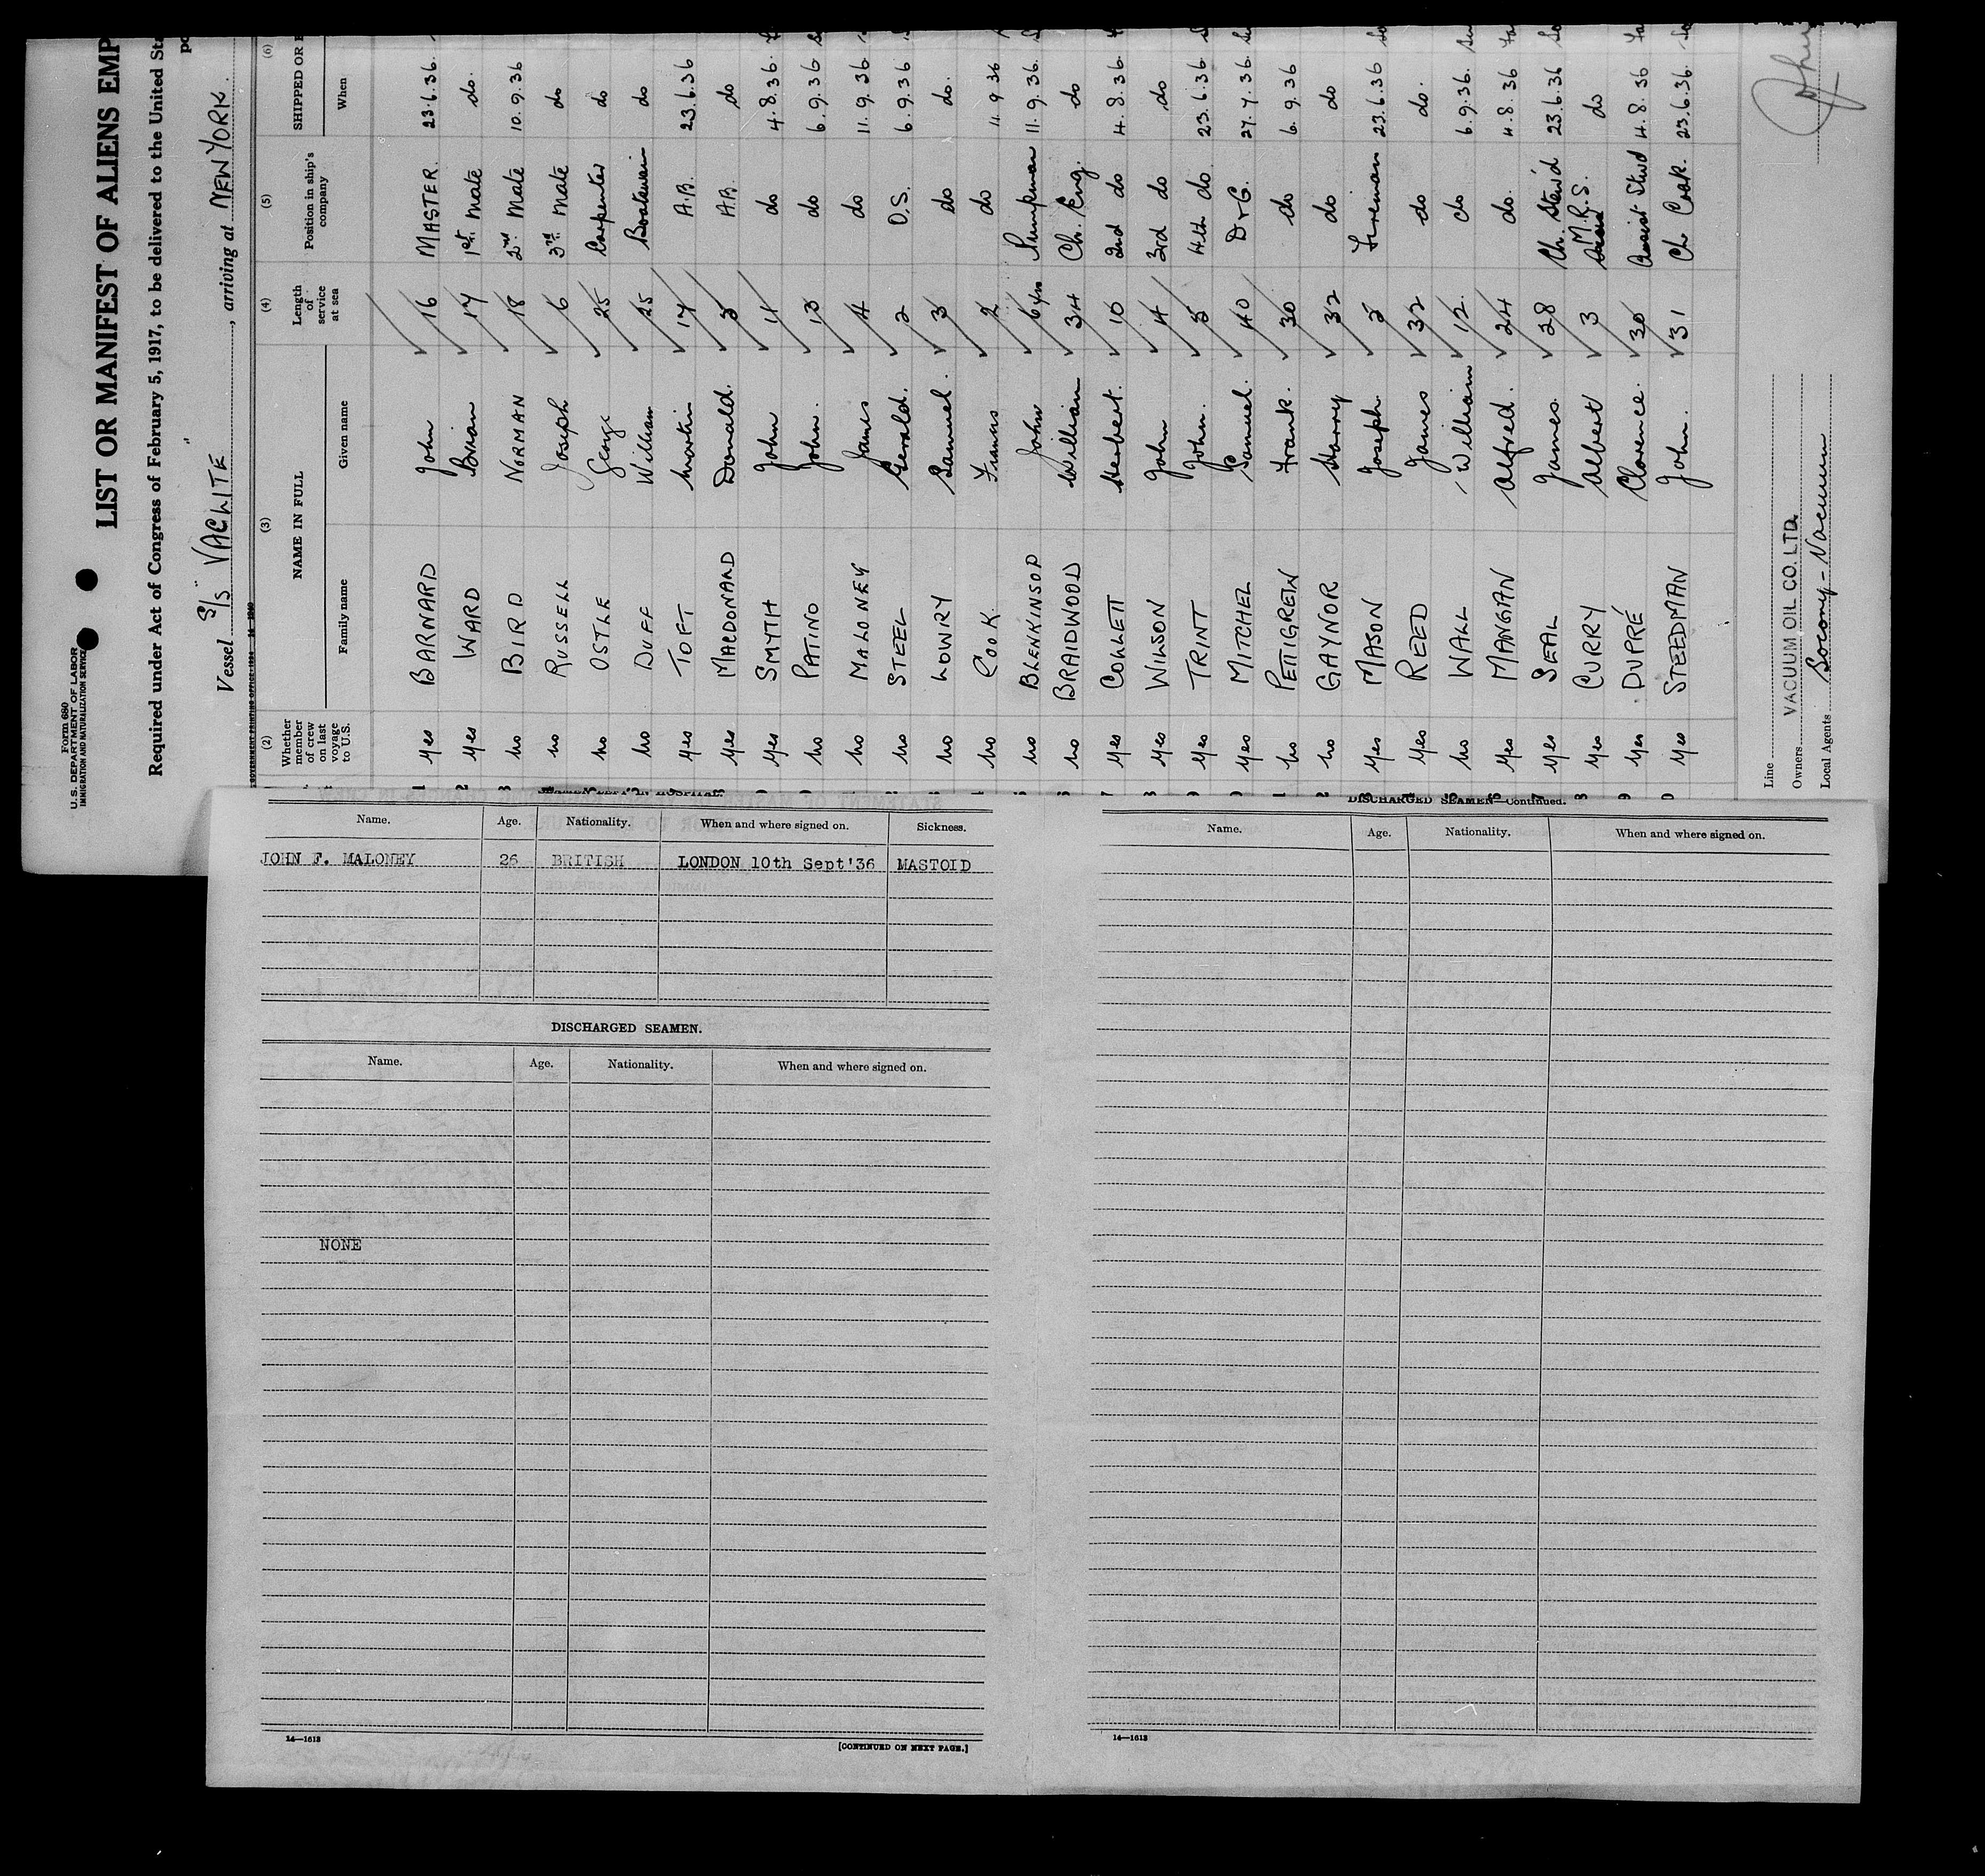 Form 680
U. S. DEPARTMENT OF LABOR
IMMIGRATION AND NATURALIZATION SERVICE
LIST OR MANIFEST OF ALIENS EMP
Required under Act of Congress of February 5, 1917, to be delivered to the United Sta
Vessel S/S "VACLITE", arriving at NEW YORK
(2) (3) (4) (5) (6)
Whether member of crew on last voyage to U.S. NAME IN FULL Length of service at sea Position in ship's company SHIPPED OR E
Family name Given name When
1 Yes BARNARD John 16 MASTER 23.6.36.
2 Yes WARD Brian 17 1st Mate do.
3 no BIRD NORMAN 18 2nd Mate 10.9.36
no RUSSELL Joseph 6 3rd Mate do
no OSTLE George 25 Carpenter do
no DUFF William 25 Boatswain do
Yes TOFT Martin 17 A.B. 23.6.36
Yes MACDONALD Donald. A.B. do
Yes SMYTH John do 4.8.36.
no PATINO John. 13 do 6.9.36
no MALONEY James 4 do 11.9.36
no STEEL Gerald. 2 O.S. 6.9.36
no LOWRY Samuel. 3 do do.
no COOK Francis 2 do 11.9.36
no BLENKINSOP John 6 yrs Pumpman 11.9.36.
no BRAIDWOOD William 34 Ch. Eng. do
7 Yes COLLETT Herbert. 10 2nd do 4.8.36.
8 Yes WILSON John 4 3rd do do
9 Yes TRINT John. 5 4th do. 23.6.36.
0 Yes MITCHEL Samuel. 40 D & G. 27.7.36.
1 no PETTIGREW Frank. 30 do 6.9.36
2 no GAYNOR Harry 32 do do
3 Yes MASON Joseph. Fireman 23.6.36
4 Yes REED James 32 do do.
5 no WALL William 12. do 6.9.36.
6 Yes MANGAN Alfred. 24 do. 4.8.36
7 Yes SEAL James. 28 Ch. Stew'd 23.6.36
8 Yes CURRY Albert 3 M.R.S. do
9 Yes DUPRÉ Clarence. 30 Assist Stwd 4.8.36
0 Yes STEEDMAN John. 31 Ch Cook. 23.6.36.
Line
Owners VACUUM OIL CO. LTD.
Local Agents Socony-Vacuum
John
Name. Age. Nationality. When and where signed on. Sickness.
JOHN F. MALONEY 26 BRITISH LONDON 10th Sept'36 MASTOID
DISCHARGED SEAMEN.
Name. Age. Nationality. When and where signed on.
NONE
14—1613
[CONTINUED ON NEXT PAGE.]
DISCHARGED SEAMEN—Continued.
Name. Age. Nationality. When and where signed on.
14—1613